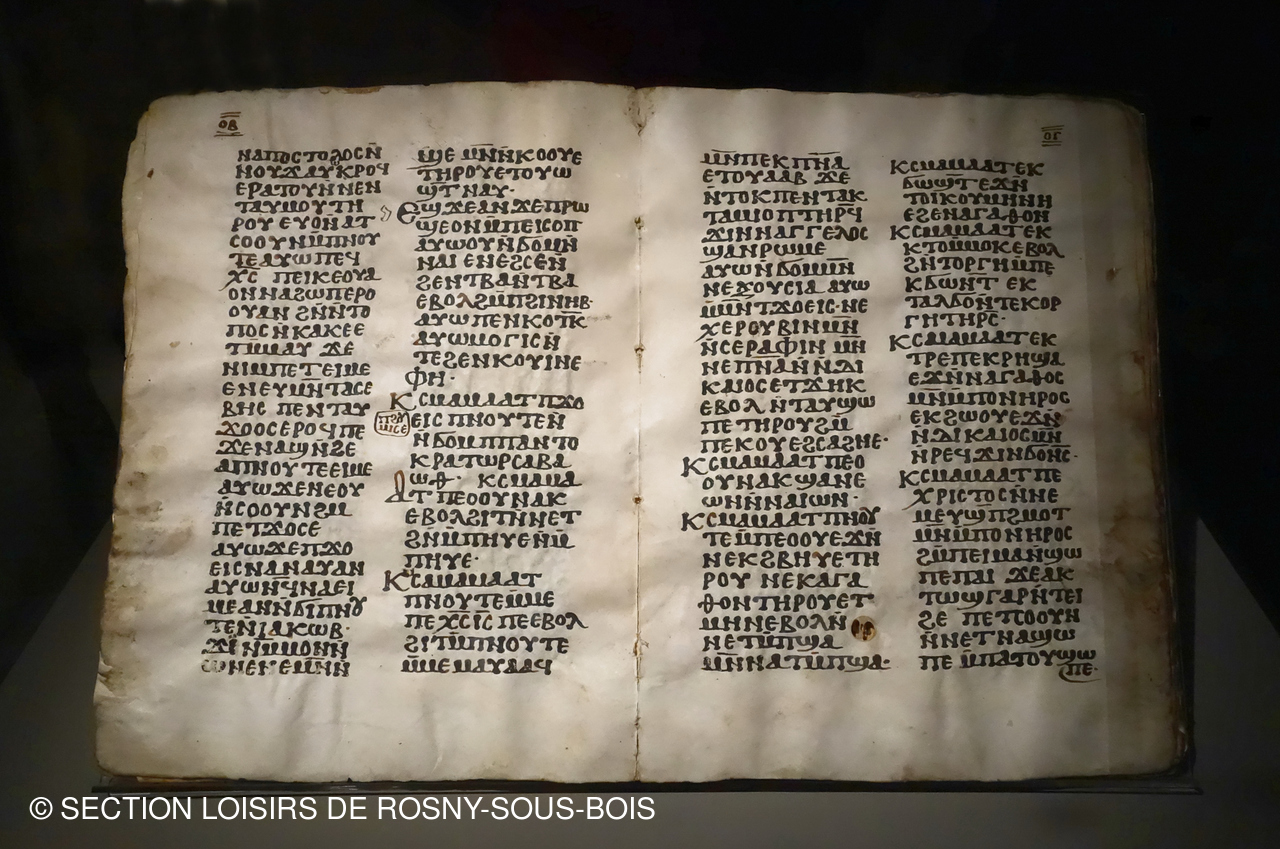 ⲟⲃ
ⲛⲁⲡⲟⲥⲧⲟⲗⲟⲥⲛ̄
ⲛⲟⲩϫⲁⲩⲕⲣⲟϥ
ⲉⲣⲁⲧⲟⲩⲛⲛⲉⲛ
ⲧⲁⲩⲙⲟⲩⲧⲏ
ⲣⲟⲩ ⲉⲩⲟⲛⲁⲧ
ⲥⲟⲟⲩⲛⲙ̄ⲡⲛⲟⲩ
ⲧⲉⲁⲩⲱ ⲡⲉϥ
ⲭ̄ⲥ̄ ⲡⲉⲓⲕⲉⲟⲩⲁ
ⲟⲛⲛⲁϩⲱⲡⲉⲣⲟ
ⲟⲩⲁⲛ ϩⲛ̄ⲛ̄ⲧⲟ
ⲡⲟⲥⲛ̄ⲕⲁⲕⲉⲉ
ⲧⲙ̄ⲙⲁⲩ ϫⲉ
ⲛⲓⲙⲡⲉⲧⲉⲓⲙⲉ
ⲉⲛⲉⲩⲛ̄ⲧⲁⲥⲉ
ⲃⲏⲥ ⲡⲉⲛⲧⲁⲩ
ϫⲟⲟⲥⲉⲣⲟϥⲡⲉ
ϫⲉⲛⲁϣⲛ̄ϩⲉ
ⲁⲡⲛⲟⲩⲧⲉⲉⲓⲙⲉ
ⲁⲩⲱϫⲉⲛⲉⲟⲩ
ⲛ̄ⲥⲟⲟⲩⲛϩⲙ
ⲡⲉⲧϫⲟⲥⲉ
ⲁⲩⲱϫⲉⲡϫⲟ
ⲉⲓⲥⲛⲁⲛⲁⲩⲁⲛ
ⲁⲩⲱⲛ̄ϥⲛⲁⲉⲓ
ⲙⲉⲁⲛⲛ̄ϭⲓⲡⲛⲟⲩ
ⲧⲉⲛ̄ⲓⲁⲕⲱⲃ·
ϫⲓⲛⲙ̄ⲙⲟⲛⲛ
ⲱⲛⲉⲕⲉⲙⲛ̄ⲛ
ϣⲉ ⲙⲛ̄ⲛ̄ⲕⲟⲟⲩⲉ
ⲧⲏⲣⲟⲩⲉⲧⲟⲩⲱ
ϣⲧⲛⲁⲩ·
ⲉϣϫⲉⲁⲛϫⲉⲡⲣⲱ
ϣⲉⲟⲛⲙ̄ⲡⲉⲓⲥⲟⲡ
ⲁⲩⲱⲟⲩⲛ̄ϭⲟⲙⲛ̄
ⲛⲁⲓ ⲉⲛⲉϩⲥⲉⲛ
ϩⲉⲛⲧⲃⲁⲛ̄ⲧⲃⲁ
ⲉⲃⲟⲗϩⲙ̄ⲡϩⲓⲛⲏⲃ·
ⲁⲩⲱ ⲡⲉⲛⲕⲟⲧⲕ̄
ⲁⲩⲱⲙⲟⲅⲓⲥⲛ̄
ⲧⲉϩⲉⲛⲕⲟⲩⲓⲛⲉ
ⲫⲏ·
ⲕⲥⲙⲁⲙⲁⲁⲧⲡϫⲟ
ⲉⲓⲥ ⲡⲛⲟⲩⲧⲉⲛ̄
ⲛ̄ϭⲟⲙⲡⲡⲁⲛⲧⲟ
ⲕⲣⲁⲧⲱⲣⲥⲁⲃⲁ
ⲱⲑ· ⲕⲥⲙⲁⲙⲁ
ⲁⲧ ⲡⲉⲟⲟⲩⲛⲁⲕ
ⲉⲃⲟⲗϩⲓⲧⲛ̄ⲛⲉⲧ
ϩⲛ̄ⲙⲡⲏⲩⲉⲛ̄ⲙ̄
ⲡⲏⲩⲉ·
ⲕⲥⲙⲁⲙⲁⲁⲧ
ⲡⲛⲟⲩⲧⲉⲙ̄ⲙⲉ
ⲡⲉⲭ̄ⲥ̄ⲓ̄ⲥ̄ ⲡⲉⲉⲃⲟⲗ
ϩⲓⲧⲙ̄ⲡⲛⲟⲩⲧⲉ
ⲙ̄ⲙⲉ ⲙⲁⲩⲁⲁϥ
ⲟⲅ
ⲙⲛ̄ⲡⲉⲕⲡ̄ⲛ̄ⲁ̄
ⲉⲧⲟⲩⲁⲁⲃ ϫⲉ
ⲛ̄ⲧⲟⲕⲡⲉⲛⲧⲁⲕ
ⲧⲁⲙⲓⲟⲡⲧⲏⲣϥ
ϫⲓⲛⲛⲁⲅⲅⲉⲗⲟⲥ
ϣⲁⲛⲣⲱⲙⲉ
ⲁⲩⲱⲛϭⲟⲙⲙⲛ̄
ⲛⲉⲝⲟⲩⲥⲓⲁ ⲁⲩⲱ
ⲙⲛ̄ⲛ̄ⲧϫⲟⲉⲓⲥ·ⲛⲉ
ⲭⲉⲣⲟⲩⲃⲓⲛⲙⲛ̄
ⲛ̄ⲥⲉⲣⲁⲫⲓⲛ ⲙⲛ̄
ⲛⲉⲡ̄ⲛ̄ⲁ̄ⲛ̄ⲛⲇⲓ
ⲕⲁⲓⲟⲥⲉⲧϫⲏⲕ
ⲉⲃⲟⲗ ⲛ̄ⲧⲁⲩϣⲱ
ⲡⲉ ⲧⲏⲣⲟⲩϩⲙ̄
ⲡⲉⲕⲟⲩⲉϩⲥⲁϩⲛⲉ·
ⲕⲥⲙⲁⲙⲁⲁⲧ ⲡⲉⲟ
ⲟⲩⲛⲁⲕ ϣⲁⲛⲉ
ⲱⲛⲏⲛⲁⲓⲱⲛ·
ⲕⲥⲙⲁⲙⲁⲁⲧⲡⲛⲟⲩ
ⲧⲉⲙ̄ⲡⲉⲟⲟⲩⲉϫⲛ̄
ⲛⲉⲕϩⲃⲏⲩⲉⲧⲏ
ⲣⲟⲩ ⲛⲉⲕⲁⲅⲁ
ⲑⲟⲛⲧⲏⲣⲟⲩⲉⲧ
ⲙⲏⲛⲉⲃⲟⲗⲛ̄
ⲛⲉⲧⲙ̄ⲡϣⲁ
ⲙⲛ̄ⲛⲁⲧⲙ̄ⲡϣⲁ·
ⲕⲥⲙⲁⲙⲁⲁⲧⲉⲕ
ϭⲱϣⲧⲉϫⲛ̄
ⲧⲟⲓⲕⲟⲩⲙⲏⲛⲏ
ⲉϩⲉⲛⲁⲅⲁⲑⲟⲛ
ⲕⲥⲙⲁⲙⲁⲁⲧⲉⲕ
ⲕⲧⲟⲙ̄ⲙⲟⲕⲉⲃⲟⲗ
ϩⲛ̄ⲧⲟⲣⲅⲏⲙ̄ⲡⲉ
ⲕϭⲱⲛⲧ ⲉⲕ
ⲧⲁⲗϭⲟⲛ̄ⲧⲉⲕⲟⲣ
ⲅⲏⲧⲏⲣⲥ·
ⲕⲥⲙⲁⲙⲁⲁⲧⲉⲕ
ⲧⲣⲉⲡⲉⲕⲣⲏϣⲁ
ⲉϫⲛ̄ⲛⲁⲅⲁⲑⲟⲥ
ⲙⲛ̄ⲙ̄ⲡⲟⲛⲏⲣⲟⲥ
ⲉⲕϩⲱⲟⲩⲉϫⲛ̄
ⲛ̄ⲇⲓⲕⲁⲓⲟⲥⲙⲛ̄
ⲛ̄ⲣⲉϥϫⲓⲛϭⲟⲛⲥ·
ⲕⲥⲙⲁⲙⲁⲁⲧ ⲡⲉ
ⲭⲣⲓⲥⲧⲟⲥⲛ̄ⲛⲉ
ⲙⲉⲩϣⲡϩⲙⲟⲧ
ⲙⲛ̄ⲙ̄ⲡⲟⲛⲏⲣⲟⲥ
ϩⲙ̄ⲡⲉⲓⲙⲁⲛ̄ϣⲱ
ⲡⲉⲡⲁⲓ ϫⲉⲁⲕ
ⲧⲱϣⲅⲁⲣⲛ̄ⲧⲉⲓ
ϩⲉ ⲡⲉⲧⲥⲟⲟⲩⲛ
ⲛ̄ⲛⲉⲧⲛⲁϣⲱ
ⲡⲉ ⲙ̄ⲡⲁⲧⲟⲩϣⲱ
ⲡⲉ·
© SECTION LOISIRS DE ROSNY-SOUS-BOIS